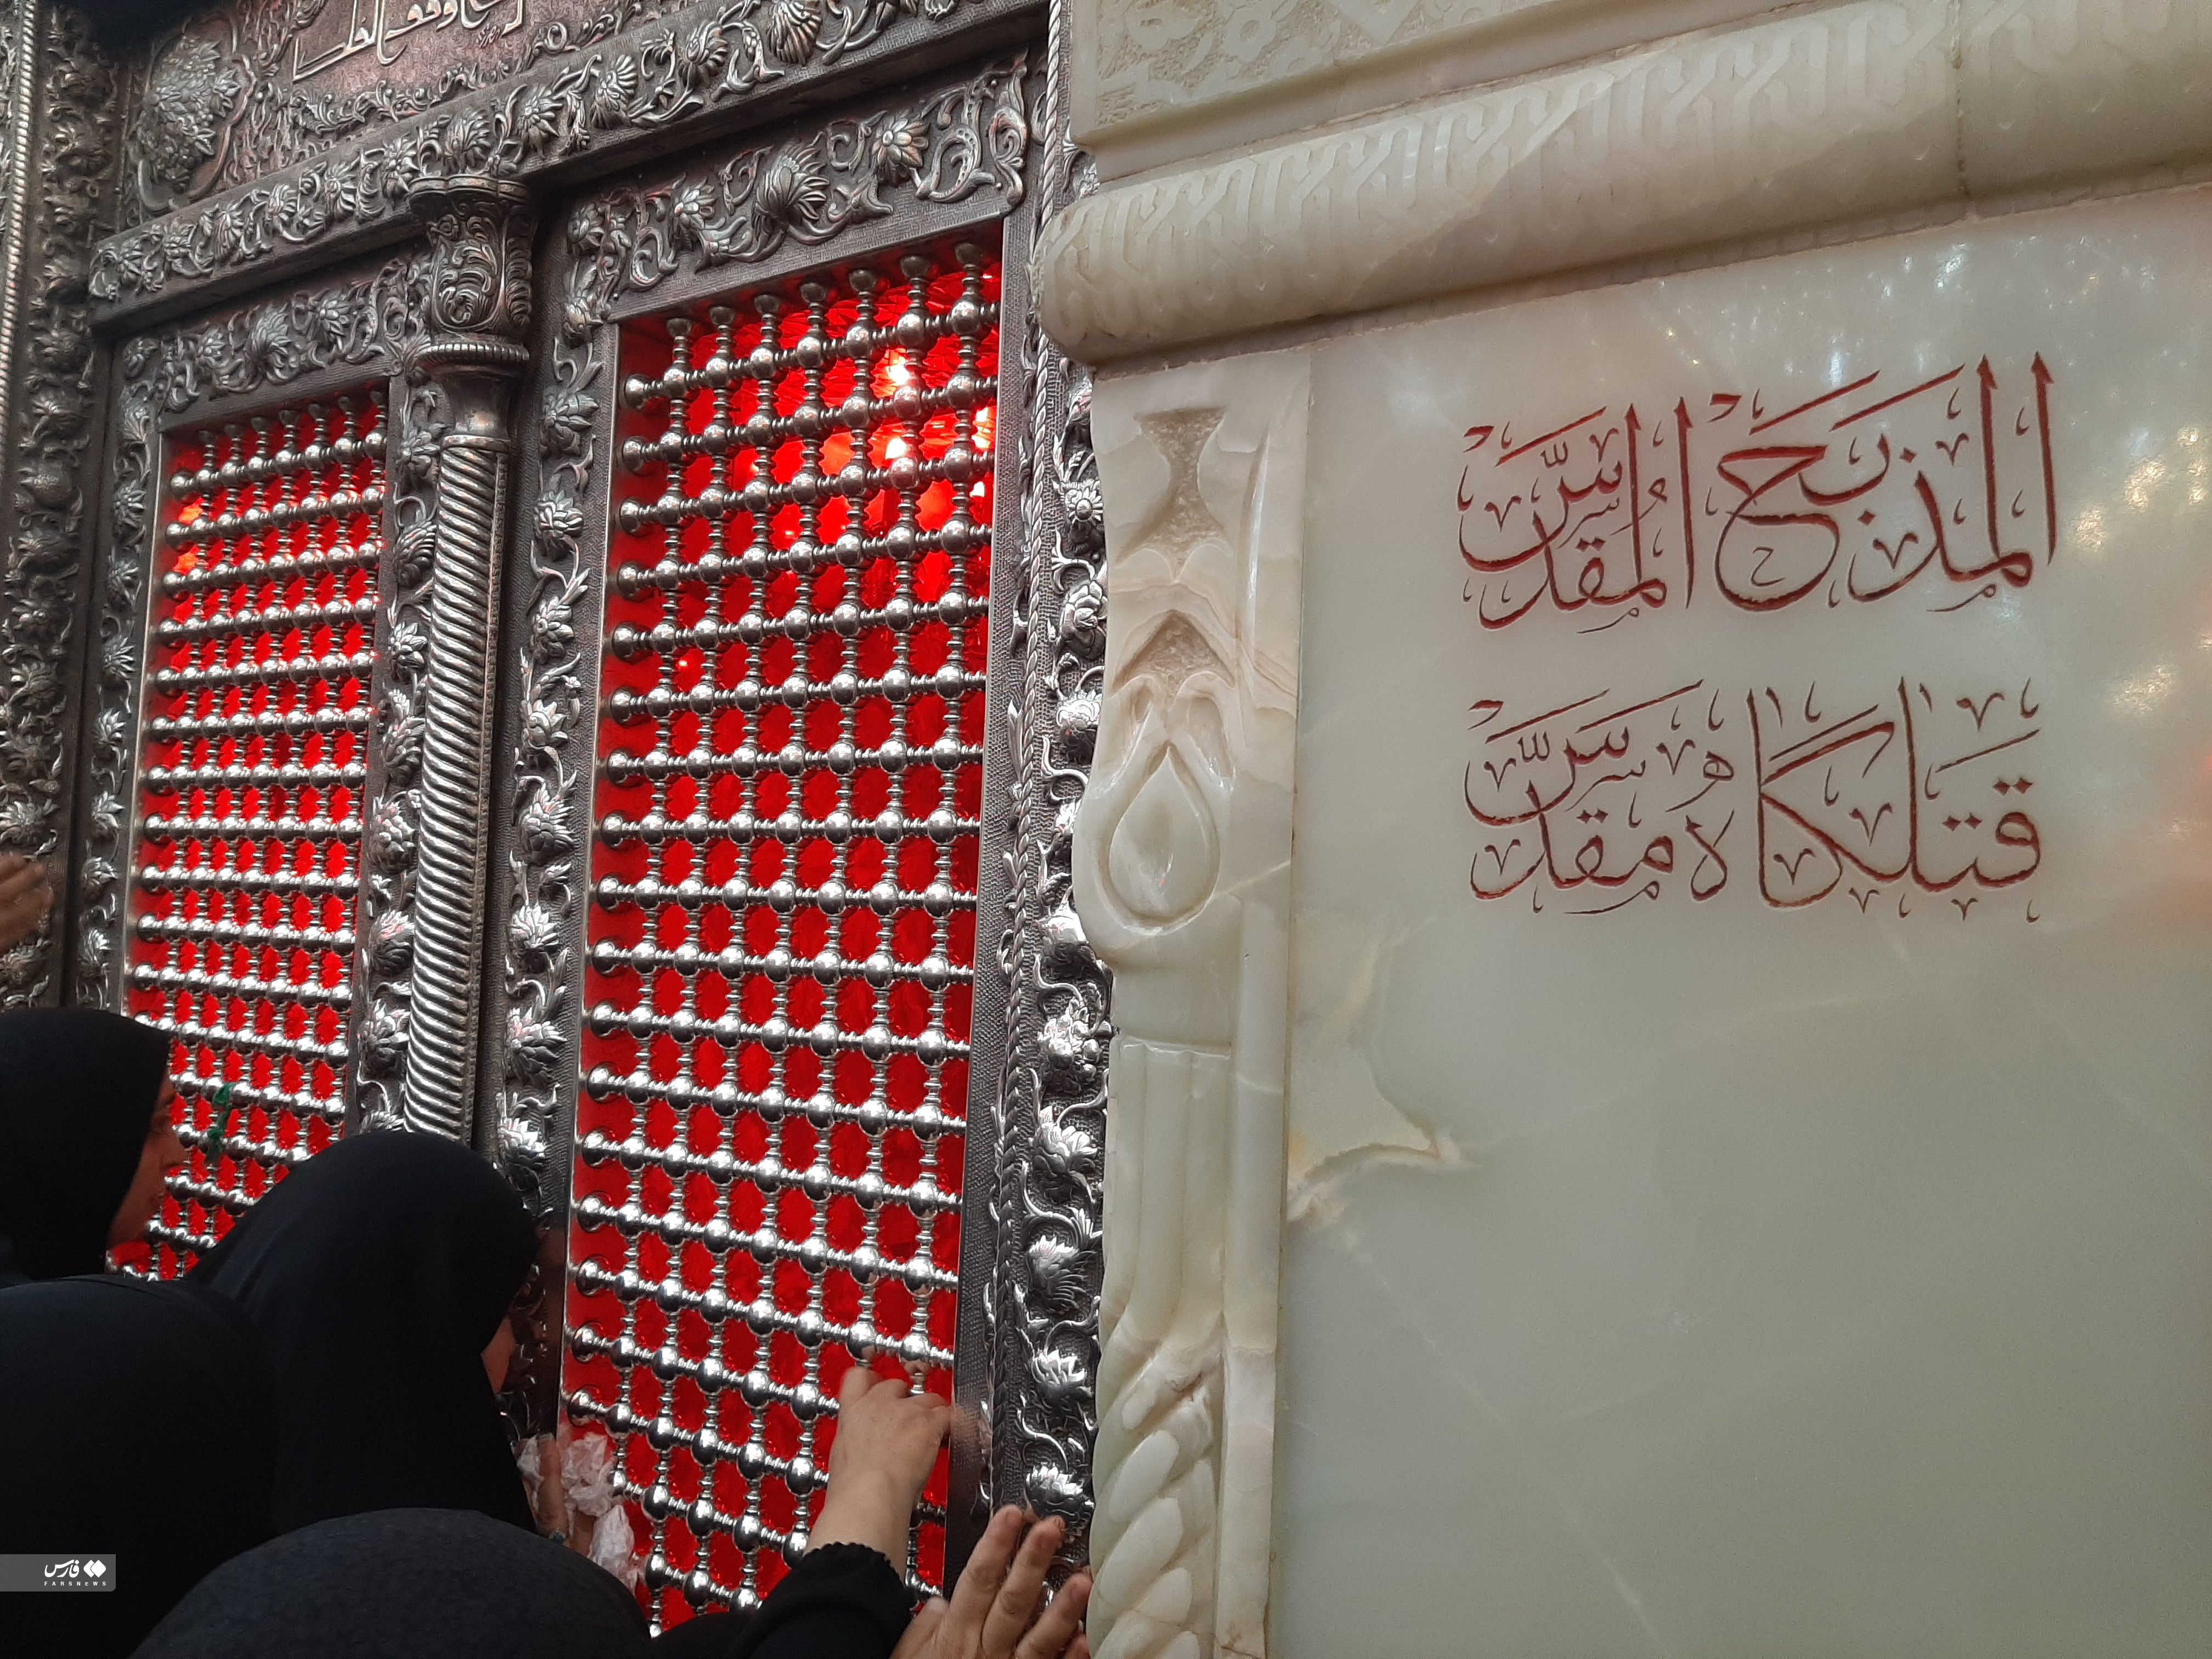 المذبح المُقدّس
قتلگاه مقدّس
فارس
FARSNEWS